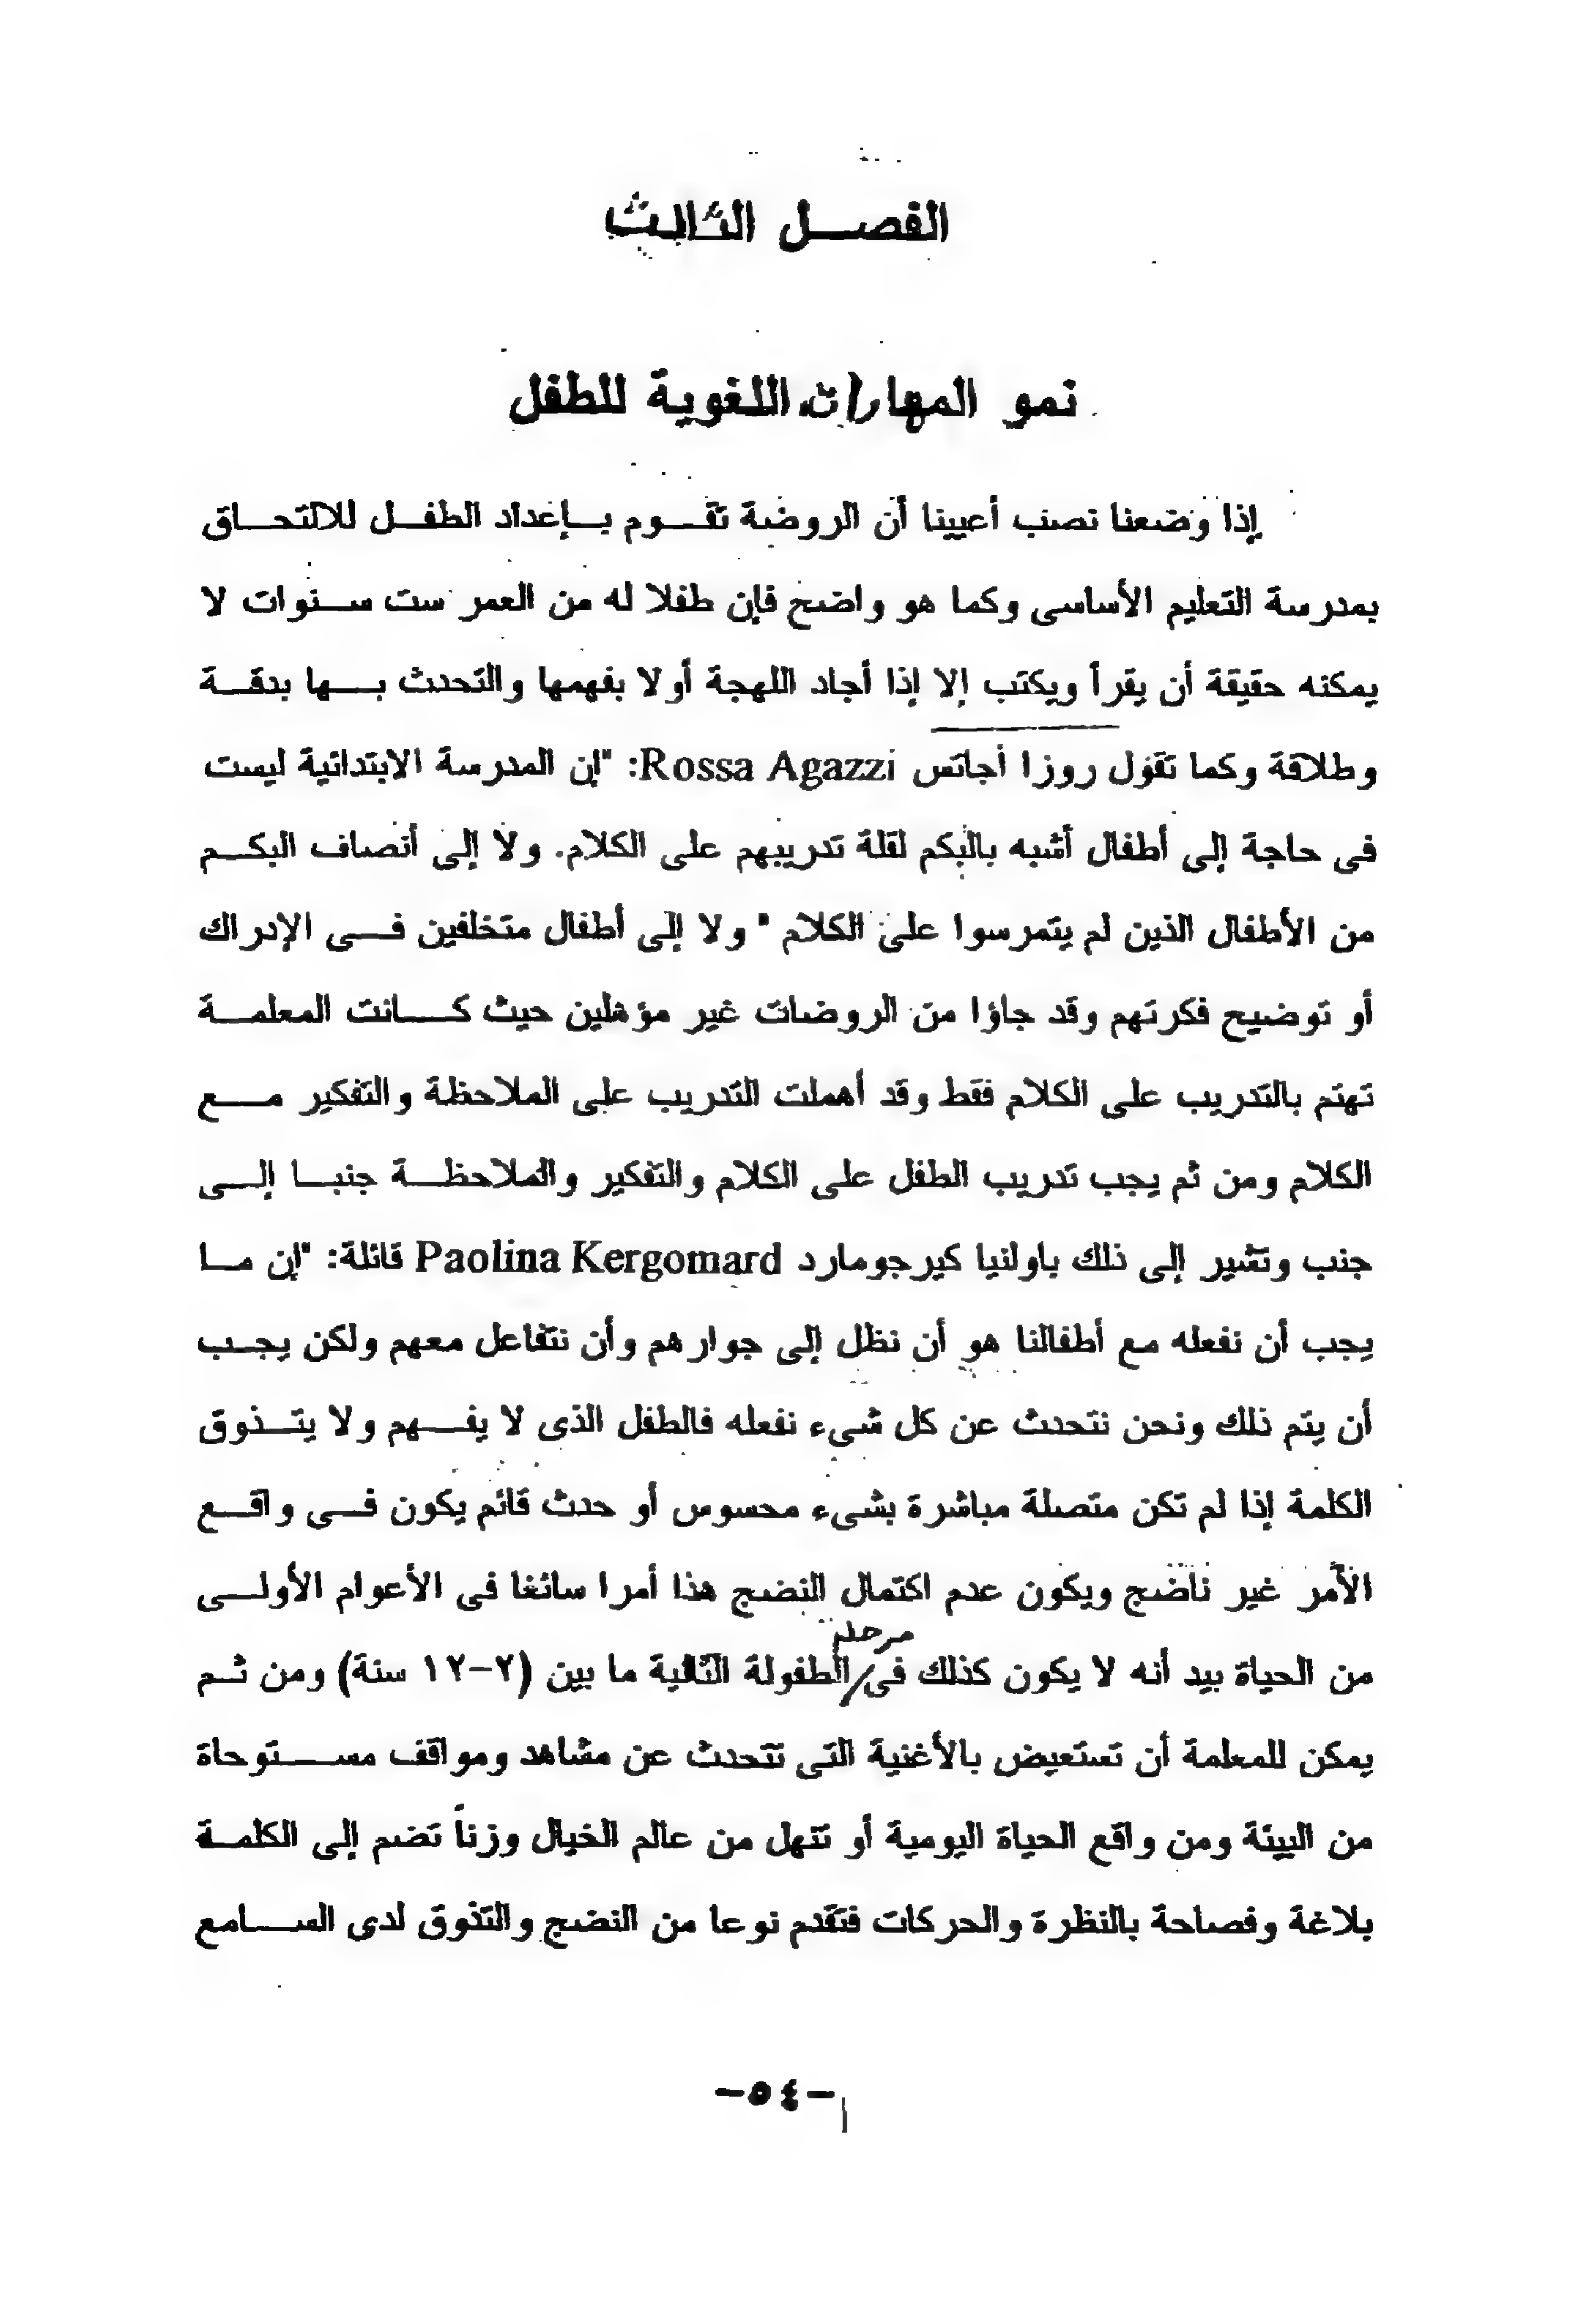 الفصل الثالث
نمو المهارات اللغوية للطفل
إذا وضعنا نصب أعيينا أن الروضة تقوم بإعداد الطفل للالتحاق
بمدرسة التعليم الأساسى وكما هو واضح فإن طفلا له من العمر ست سنوات لا
يمكنه حقيقة أن يقرأ ويكتب إلا إذا أجاد اللهجة أولا بفهمها والتحدث بها بدقة
وطلاقة وكما تقول روزا أجاتس Rossa Agazzi: "إن المدرسة الابتدائية ليست
فى حاجة إلى أطفال أشبه بالبكم لقلة تدريبهم على الكلام. ولا إلى أنصاف البكم
من الأطفال الذين لم يتمرسوا على الكلام " ولا إلى أطفال متخلفين فى الإدراك
أو توضيح فكرتهم وقد جاؤا من الروضات غير مؤهلين حيث كانت المعلمة
تهتم بالتدريب على الكلام فقط وقد أهملت التدريب على الملاحظة والتفكير مع
الكلام ومن ثم يجب تدريب الطفل على الكلام والتفكير والملاحظة جنبا إلى
جنب وتشير إلى ذلك باولنيا كيرجومارد Paolina Kergomard قائلة: "إن ما
يجب أن نفعله مع أطفالنا هو أن نظل إلى جوارهم وأن نتفاعل معهم ولكن يجب
أن يتم ذلك ونحن نتحدث عن كل شىء نفعله فالطفل الذى لا يفهم ولا يتذوق
الكلمة إذا لم تكن متصلة مباشرة بشىء محسوس أو حدث قائم يكون فى واقع
الأمر غير ناضج ويكون عدم اكتمال النضج هذا أمرا سائغا فى الأعوام الأولى
من الحياة بيد أنه لا يكون كذلك فى مرحلة الطفولة التالية ما بين (٢-١٢ سنة) ومن ثم
يمكن للمعلمة أن تستعيض بالأغنية التى تتحدث عن مشاهد ومواقف مستوحاة
من البيئة ومن واقع الحياة اليومية أو تنهل من عالم الخيال وزناً تضم إلى الكلمة
بلاغة وفصاحة بالنظرة والحركات فتقدم نوعا من النضج والتذوق لدى السامع
-٥٤-